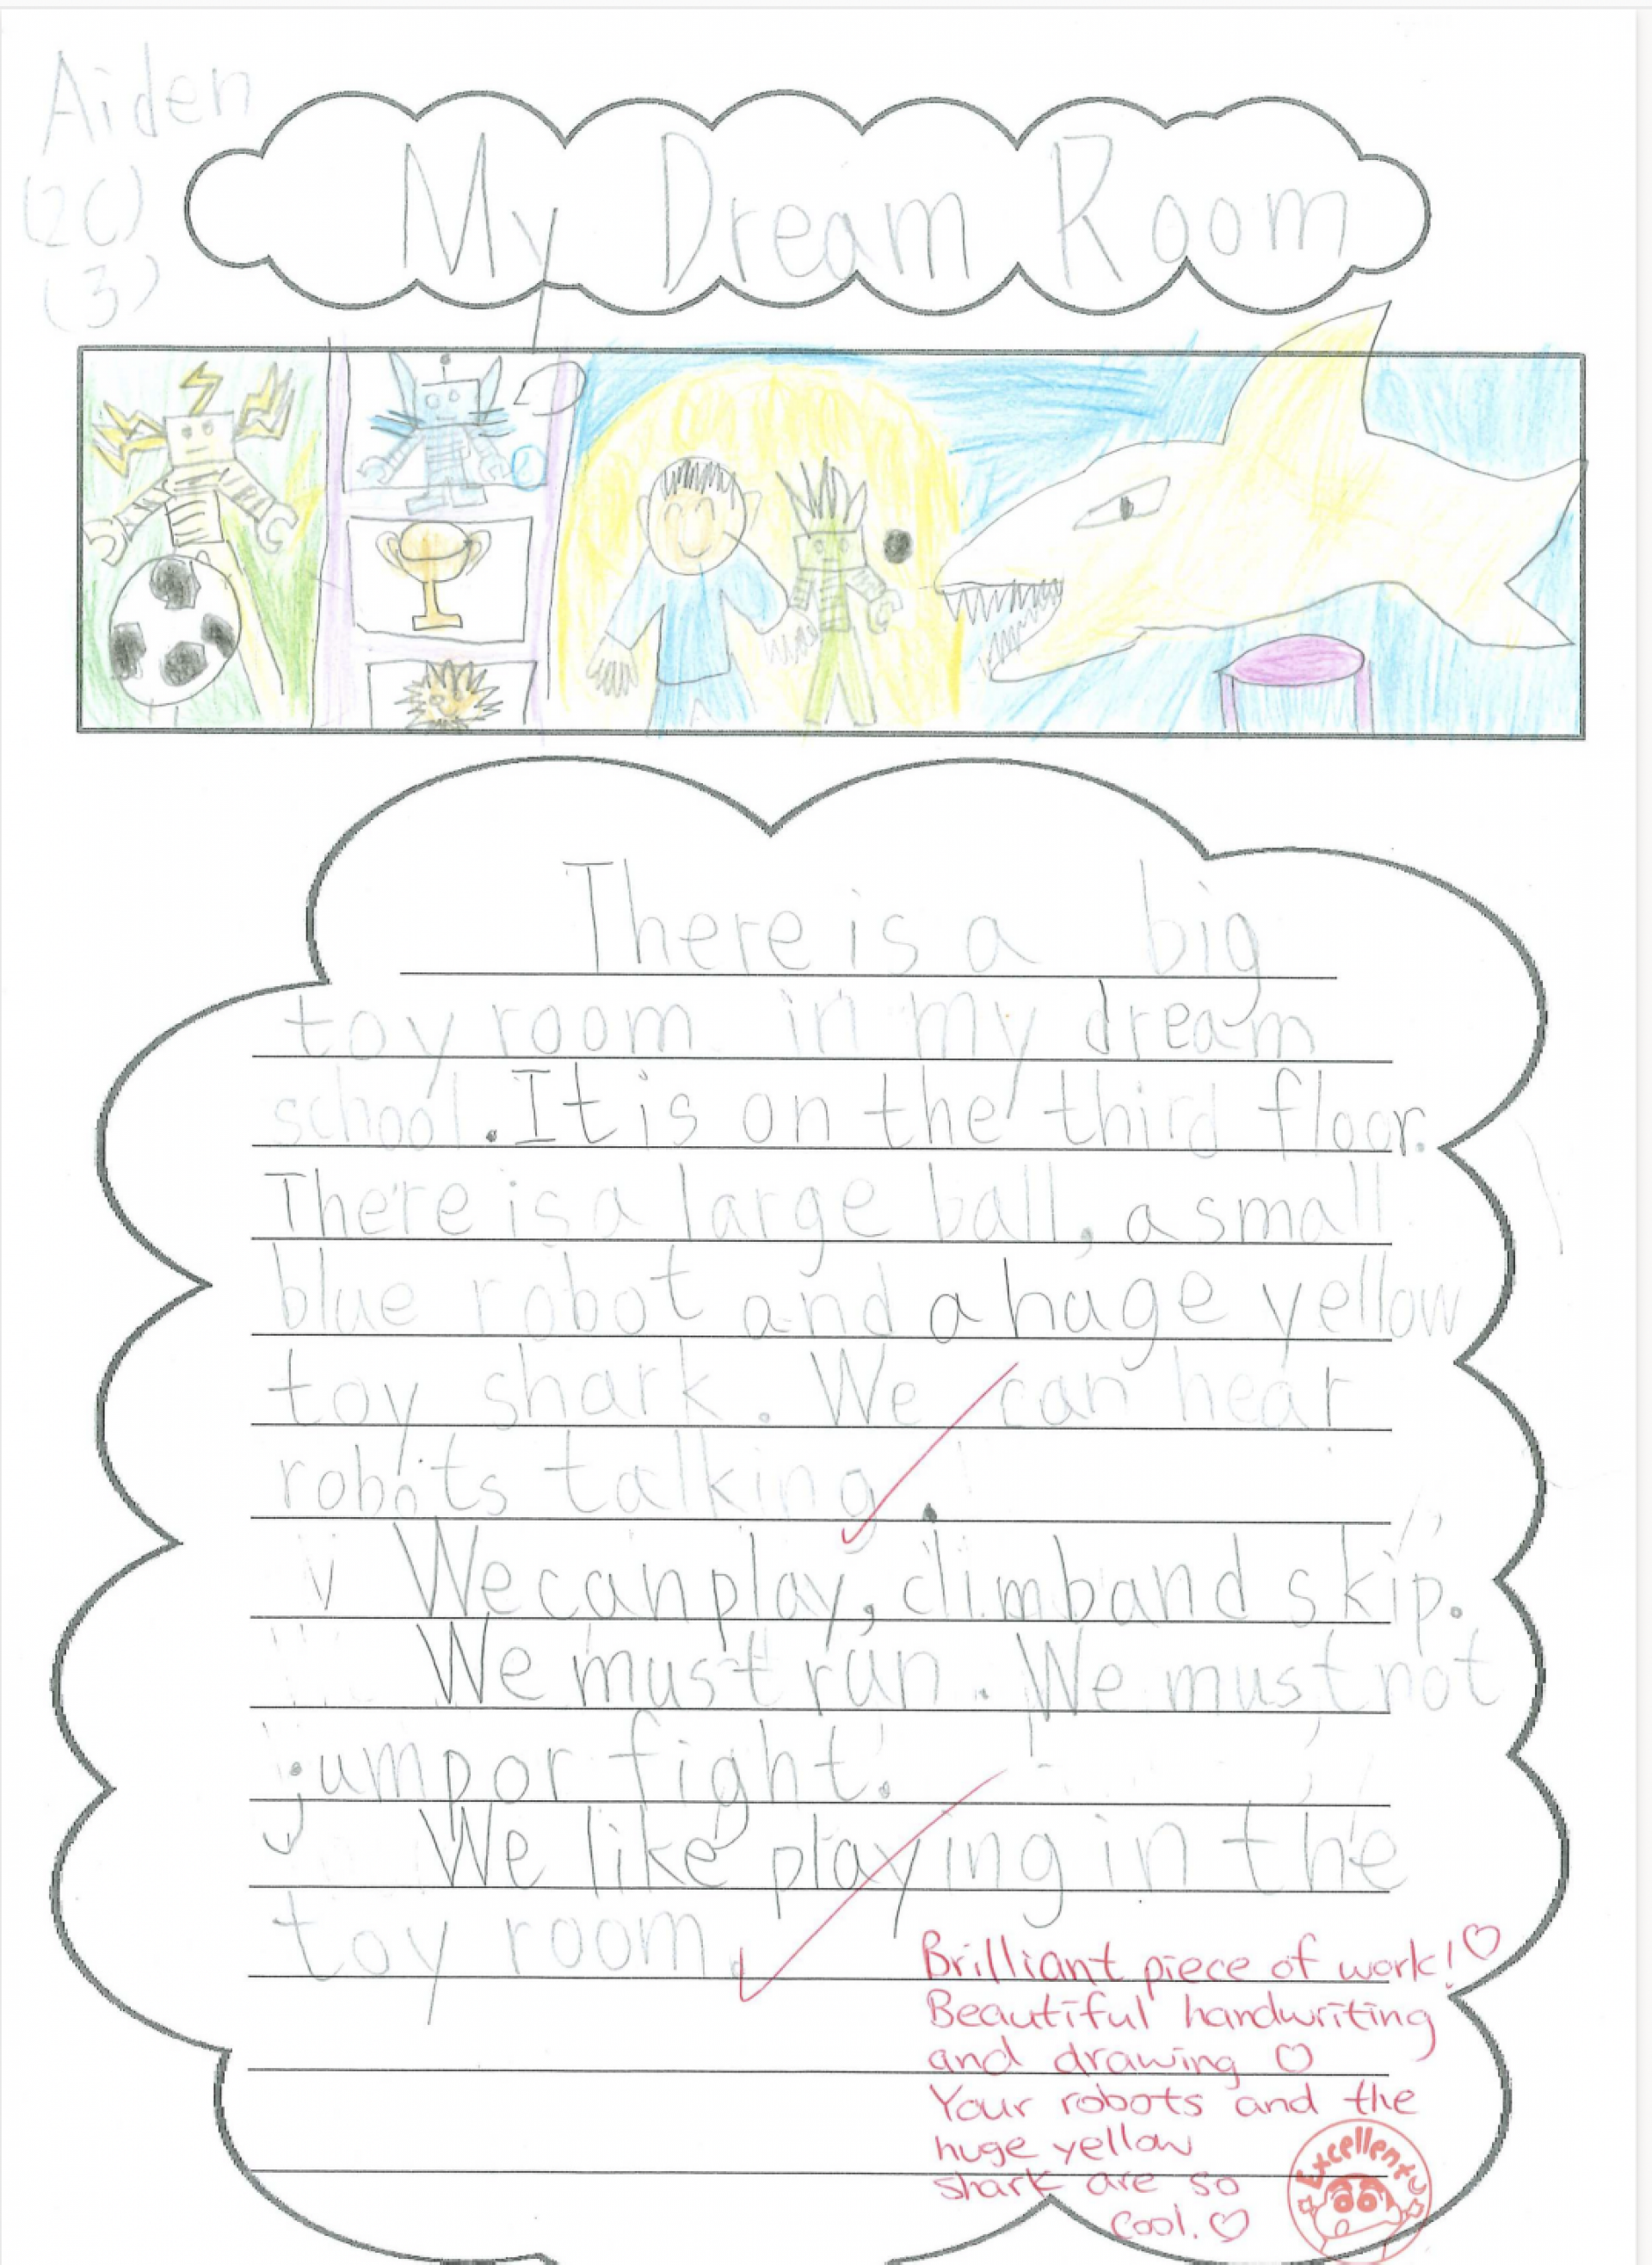 Aiden
(2C)
(3)
My Dream Room
There is a big
toy room in my dream
school. It is on the third floor.
There is a large ball, a small
blue robot and a huge yellow
toy shark. We can hear
robots talking.
We can play, climb and skip.
We must run. We must not
jump or fight.
We like playing in the
toy room.
Brilliant piece of work! ♡
Beautiful handwriting
and drawing ♡
Your robots and the
huge yellow
shark are so
cool. ♡
Excellent